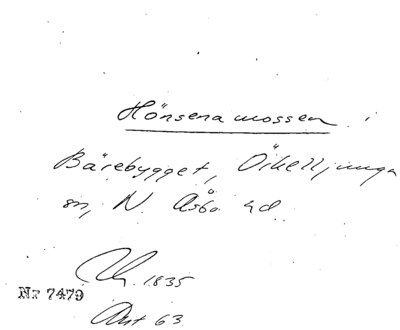 Hönsena mossen i
Bärebygget, Örkelljunga
sn, N. Åsbo hd
1835
Nr 7479
Akt 63